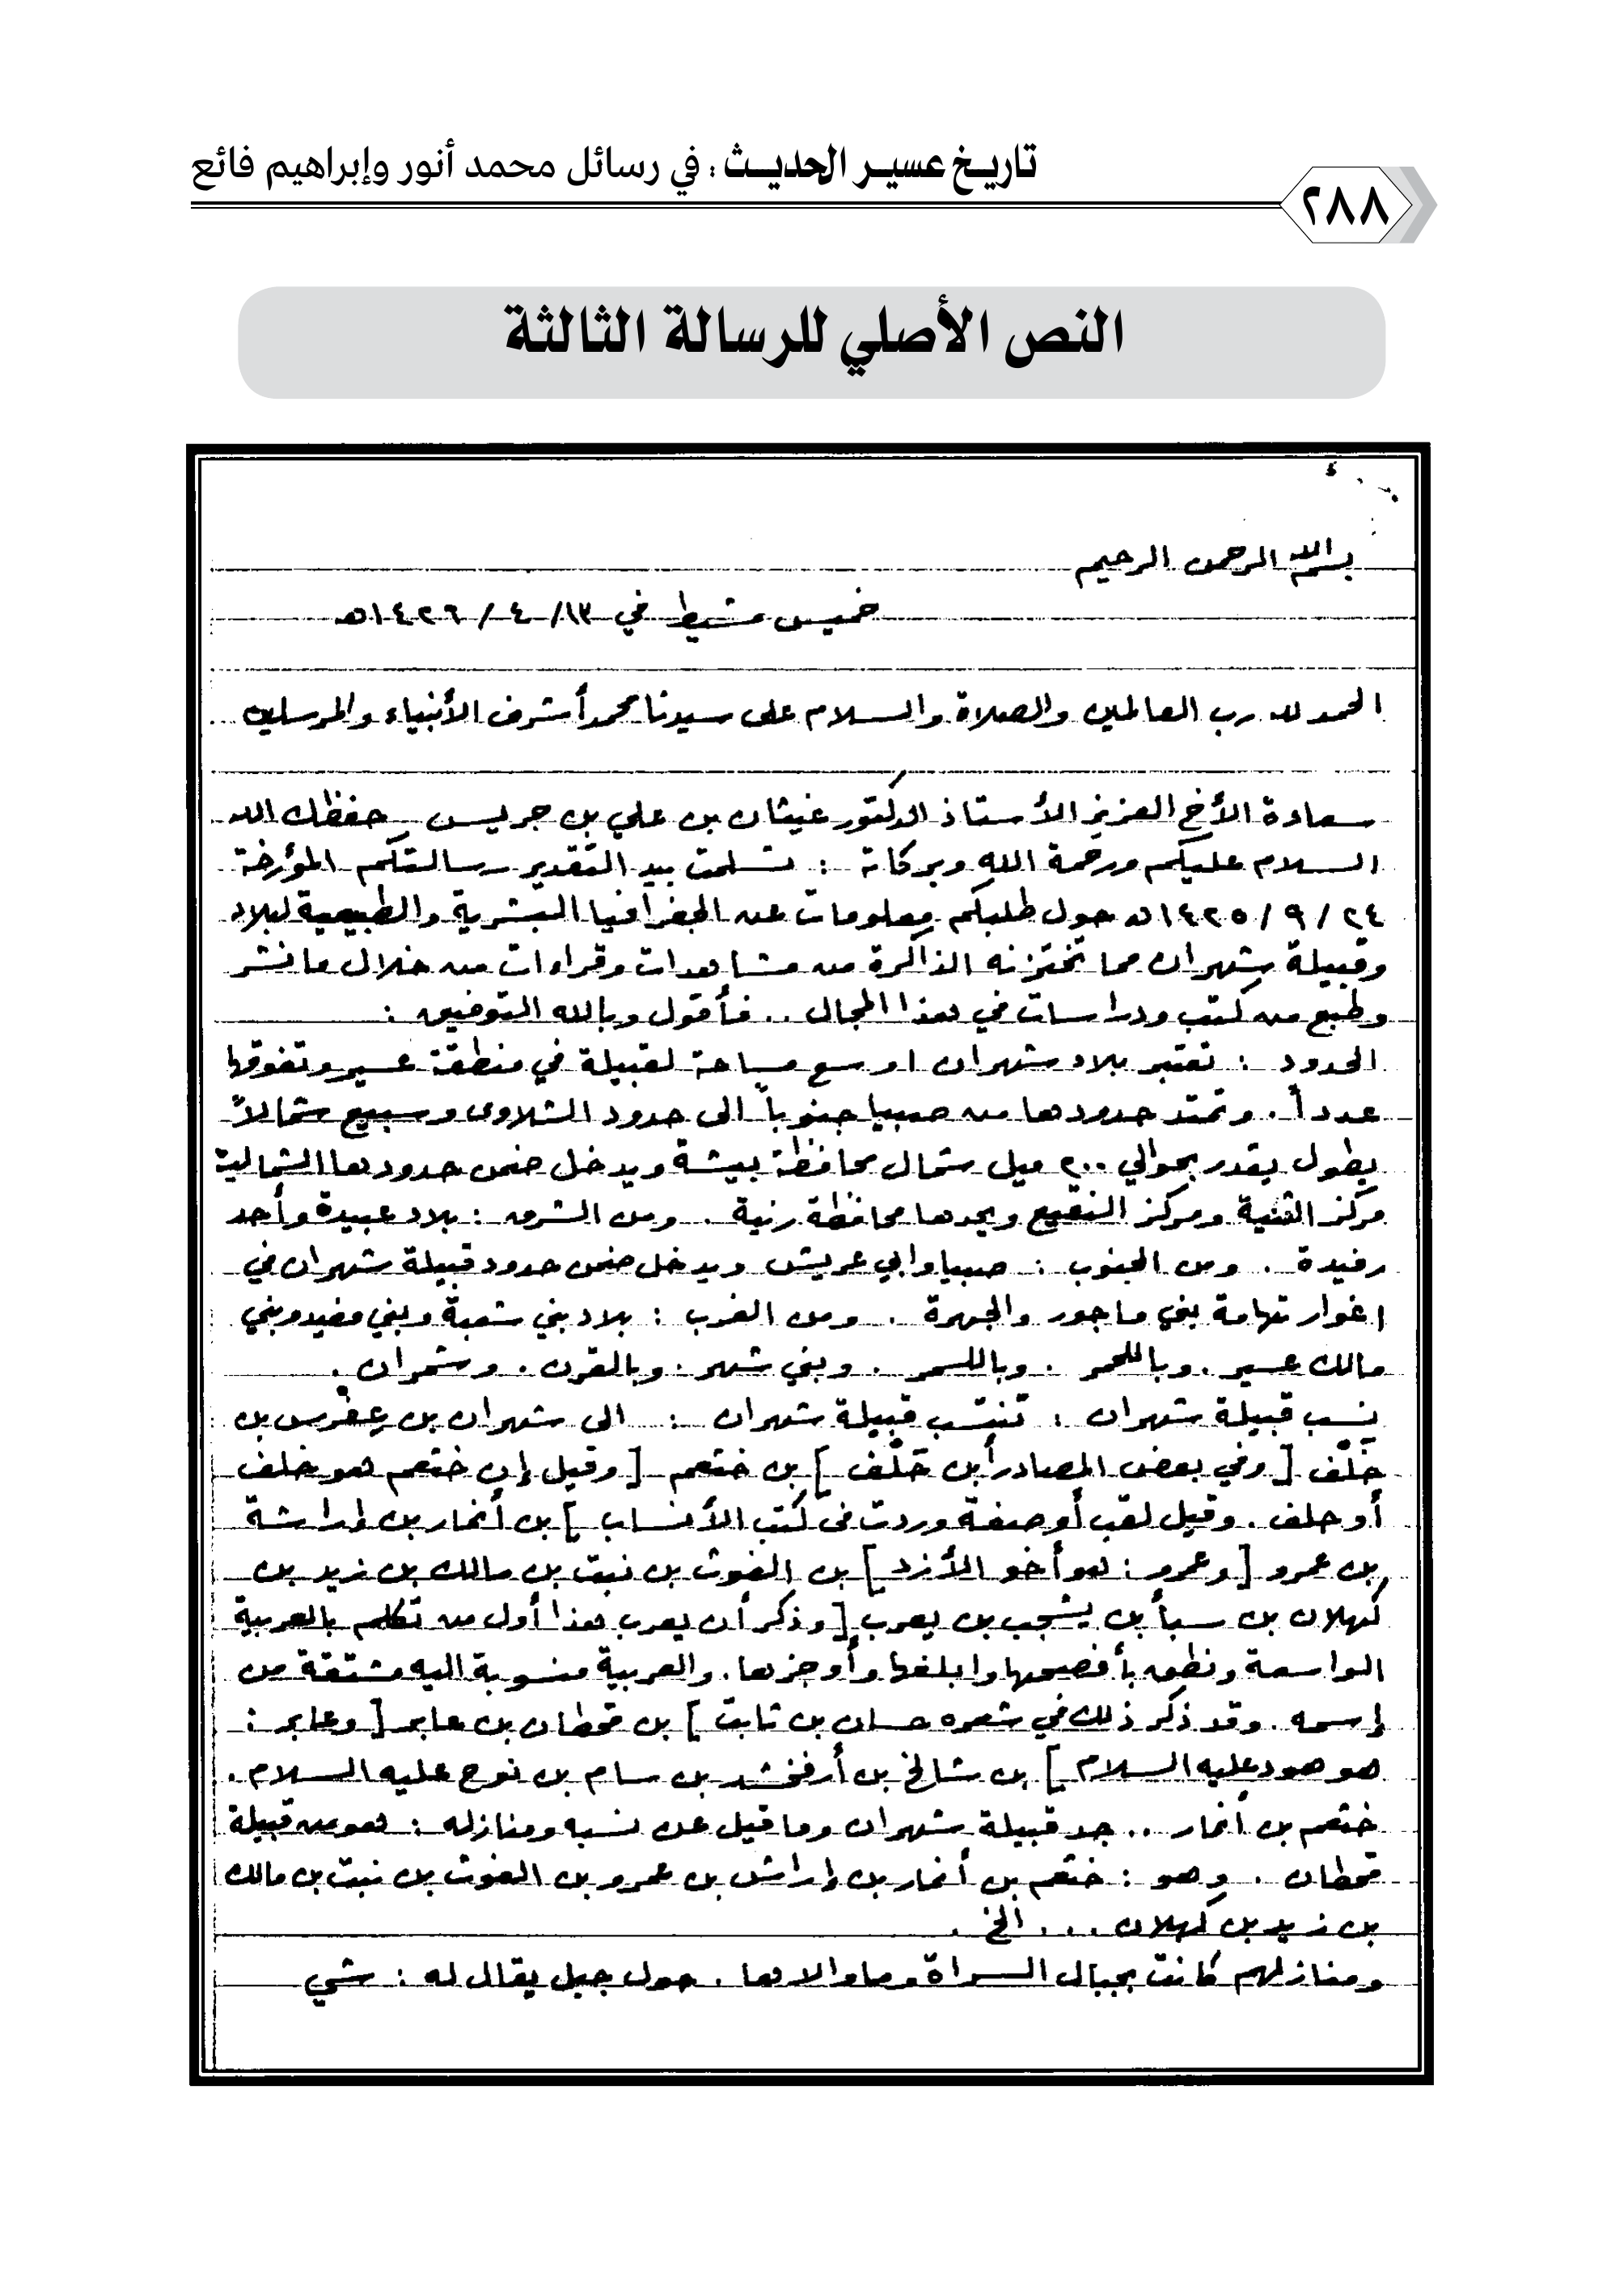 تاريخ عسير الحديث : في رسائل محمد أنور وإبراهيم فائع
٢٨٨
النص الأصلي للرسالة الثالثة
بسم الله الرحمن الرحيم
خميس مشيط في ١٣/ ٤ / ١٤٢٦هـ
الحمد لله رب العالمين والصلاة والسلام على سيدنا محمد أشرف الأنبياء والمرسلين
سعادة الأخ العزيز الأستاذ الدكتور غيثان بن علي بن جريس حفظك الله
السلام عليكم ورحمة الله وبركاته : تسلمت بيد التقدير رسالتكم المؤرخة
٢٤ / ٩ / ١٤٢٥هـ حول طلبكم معلومات عن الجغرافيا البشرية والطبيعية لبلاد
وقبيلة شهران مما تختزنه الذاكرة من مشاهدات وقراءات من خلال ما نشر
وطبع من كتب ودراسات في هذا المجال .. فأقول وبالله التوفيق :
الحدود : تعتبر بلاد شهران اوسع مساحة لقبيلة في منطقة عسير وتفوقها
عدداً . وتمتد حدودها من صبيا جنوباً الى حدود الشلاوى وسبيع شمالاً
بطول يقدر بحوالي ٢٠٠ ميل شمال محافظة بيشة ويدخل ضمن حدودها الشمالية
مركز الثنية ومركز النقيع ويحدها محافظة رنية . ومن الشرق : بلاد عبيدة وأحد
رفيدة . ومن الجنوب : صبيا وابي عريش ويدخل ضمن حدود قبيلة شهران في
اغوار تهامة بني ماجور والجهرة . ومن الغرب : بلاد بني شعبة وبني مغيد وبني
مالك عسير . وباللحمر . وباللسمر . وبني شهر . وبالقرن . وشمران .
نسب قبيلة شهران : تنتسب قبيلة شهران : الى شهران بن عِفْرس بن
خَلْف [ وفي بعض المصادر أبن حَلْف ] بن خثعم [ وقيل إن خثعم هو خلف
أو حلف . وقيل لقب أو صفة وردت في كتب الأنساب ] بن أنمار بن إراشة
بن عمرو [ وعمرو : هو أخو الأزد ] بن الغوث بن نبت بن مالك بن زيد بن
كهلان بن سبأ بن يشجب بن يعرب [ وذكر أن يعرب هذا أول من تكلم بالعربية
الواسعة ونطق بأفصحها وابلغها وأوجزها . والعربية منسوبة اليه مشتقة من
إسمه . وقد ذكر ذلك في شعره حسان بن ثابت ] بن قحطان بن عابر [ وعابر :
هو هود عليه السلام ] بن شالخ بن أرفخشد بن سام بن نوح عليه السلام .
خثعم بن أنمار .. جد قبيلة شهران وما قيل عن نسبه ومنازله : هو من قبيلة
قحطان . وهو : خثعم بن أنمار بن إراش بن عمرو بن الغوث بن نبت بن مالك
بن زيد بن كهلان ... الخ .
ومنازلهم كانت بجبال السراة وما والاها . حول جبل يقال له : شي